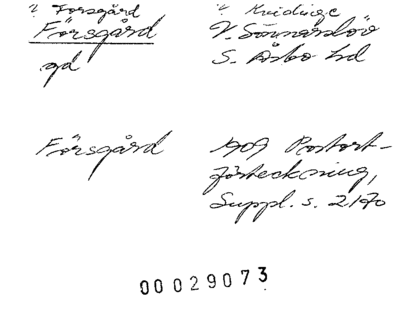 ? Forsgård
? Kvidinge
Försgård
V. Sönnarslöv
gd
S. Åsbo hd
Försgård
1909 Postort-
förteckning,
Suppl. s. 2170
00029073